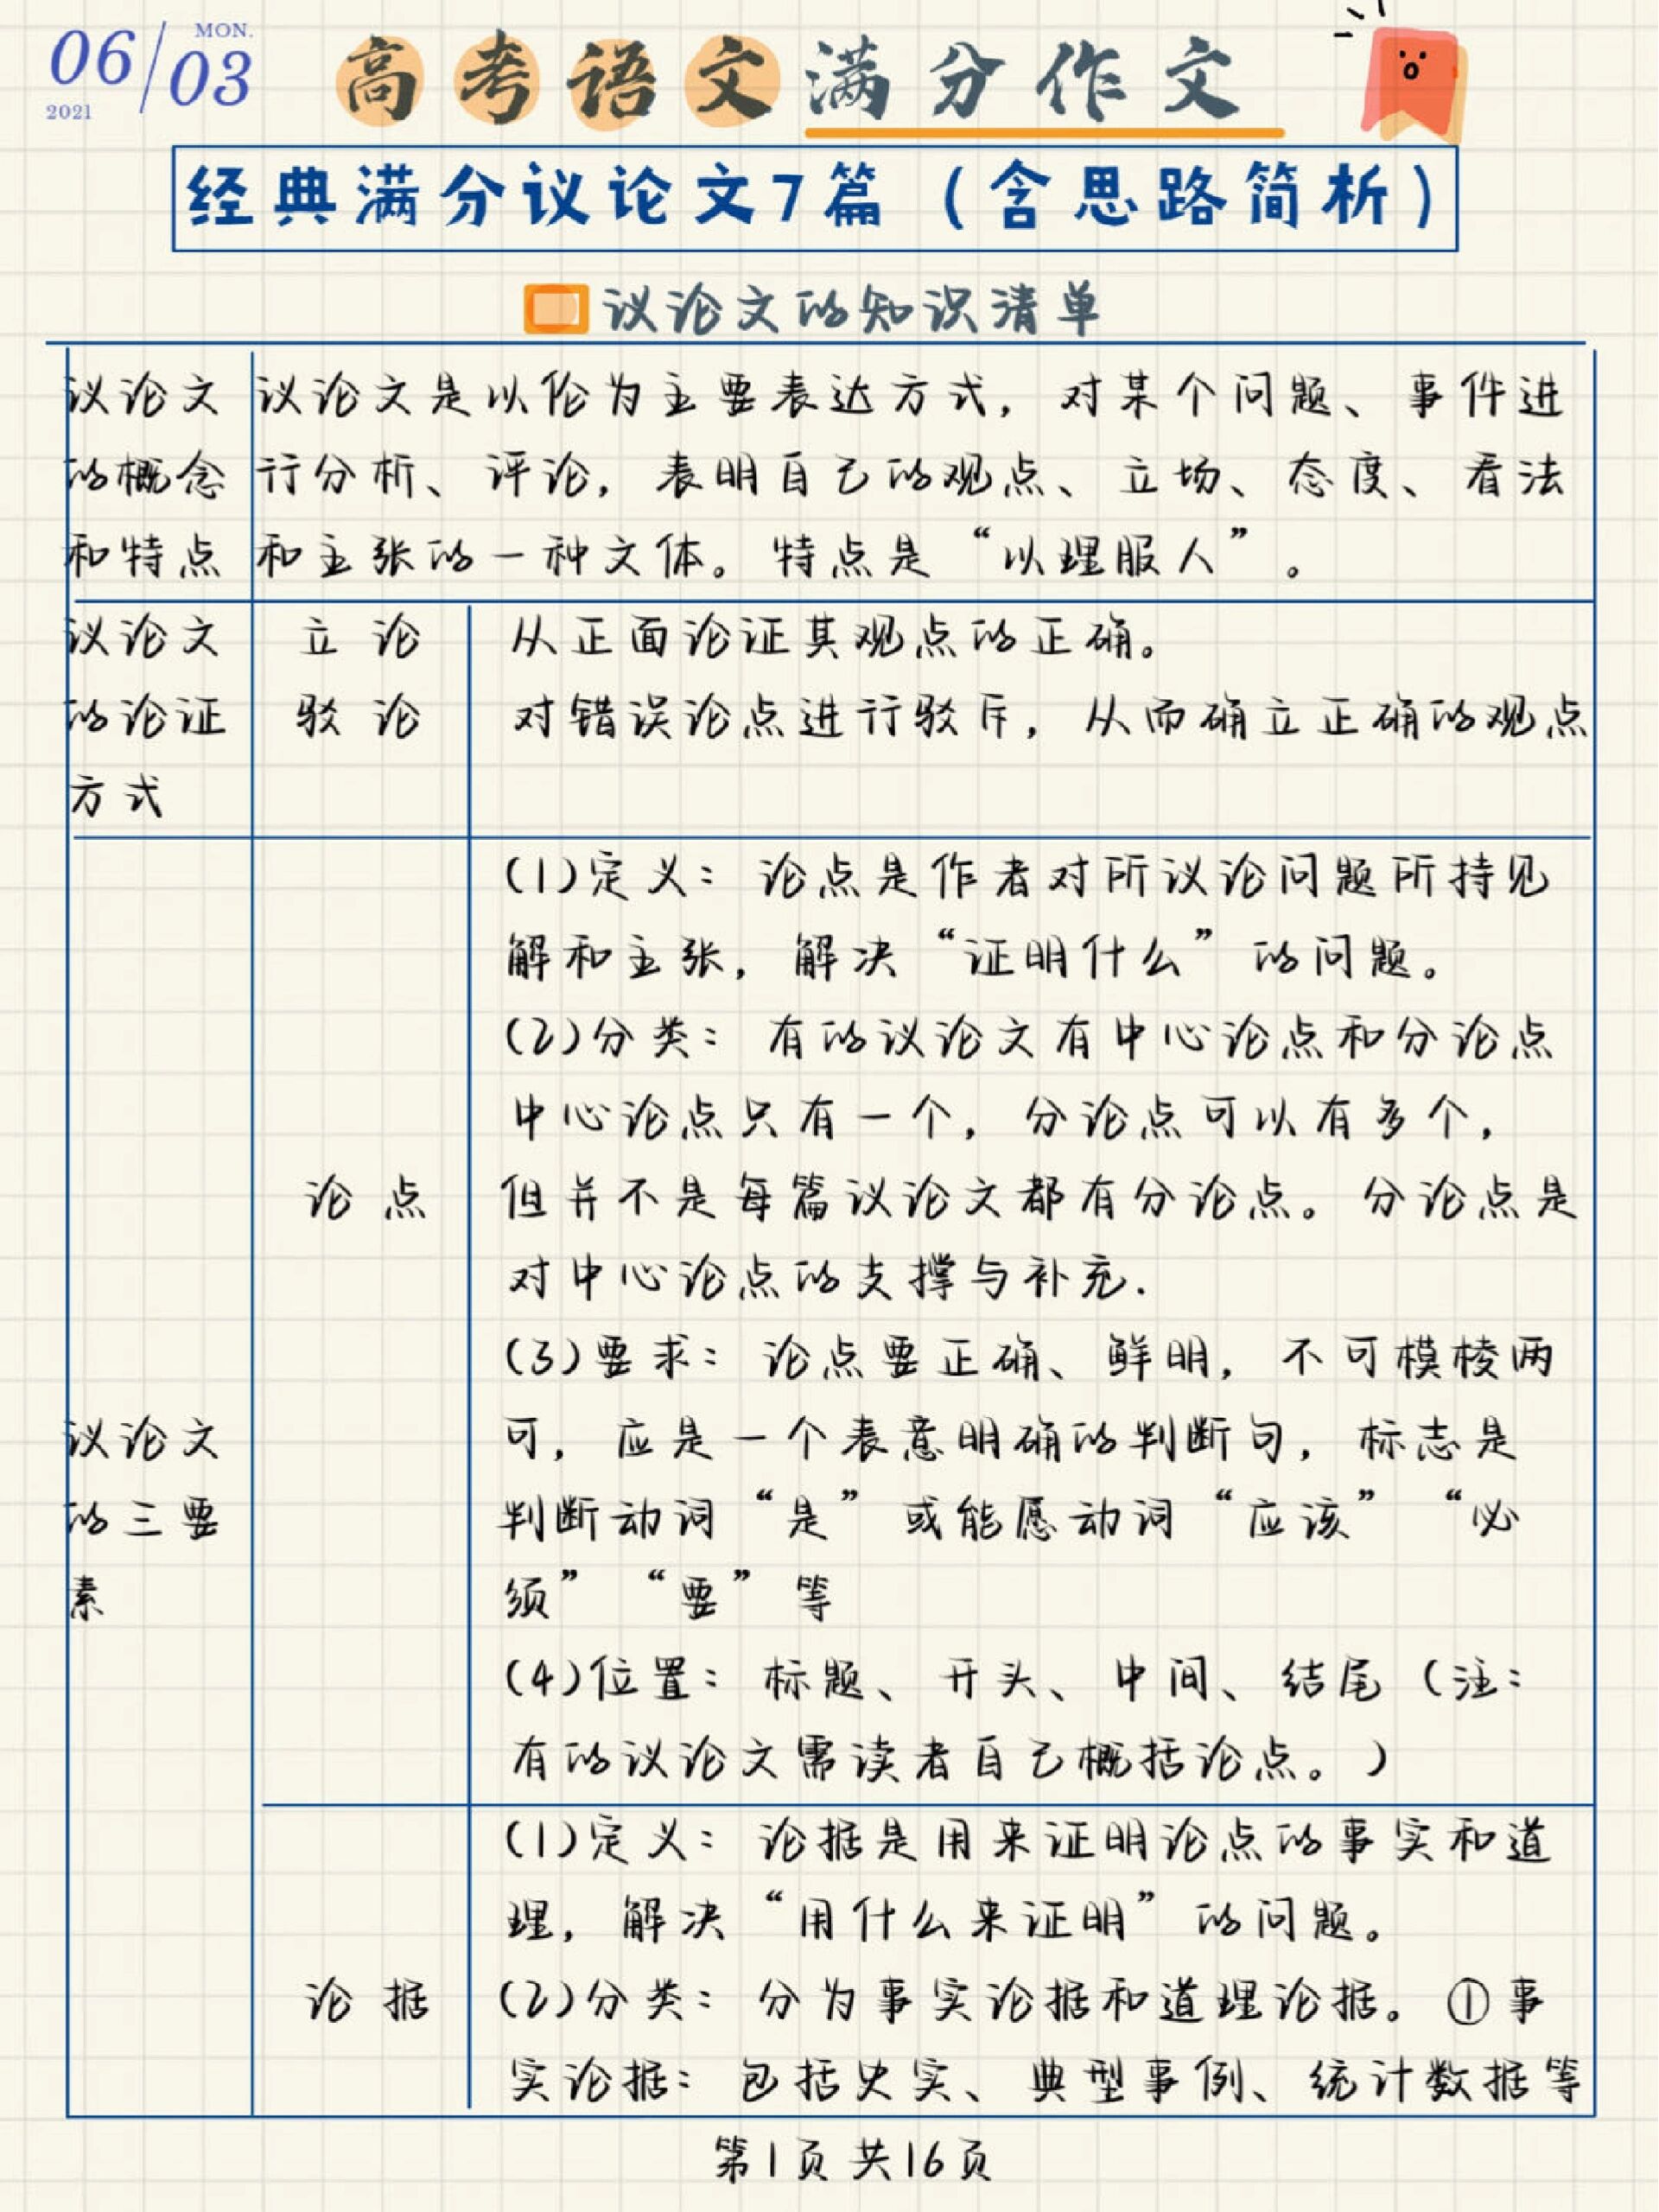 06/03
MON.
2021
高考语文满分作文
经典满分议论文7篇（含思路简析）
议论文的知识清单
议论文的概念和特点
议论文是以伦为主要表达方式，对某个问题、事件进
行分析、评论，表明自己的观点、立场、态度、看法
和主张的一种文体。特点是“以理服人”。
议论文的论证方式
立论 从正面论证其观点的正确。
驳论 对错误论点进行驳斥，从而确立正确的观点
议论文的三要素
论点
(1)定义：论点是作者对所议论问题所持见
解和主张，解决“证明什么”的问题。
(2)分类：有的议论文有中心论点和分论点
中心论点只有一个，分论点可以有多个，
但并不是每篇议论文都有分论点。分论点是
对中心论点的支撑与补充.
(3)要求：论点要正确、鲜明，不可模棱两
可，应是一个表意明确的判断句，标志是
判断动词“是”或能愿动词“应该”“必
须”“要”等
(4)位置：标题、开头、中间、结尾（注：
有的议论文需读者自己概括论点。）
论据
(1)定义：论据是用来证明论点的事实和道
理，解决“用什么来证明”的问题。
(2)分类：分为事实论据和道理论据。①事
实论据：包括史实、典型事例、统计数据等
第1页 共16页